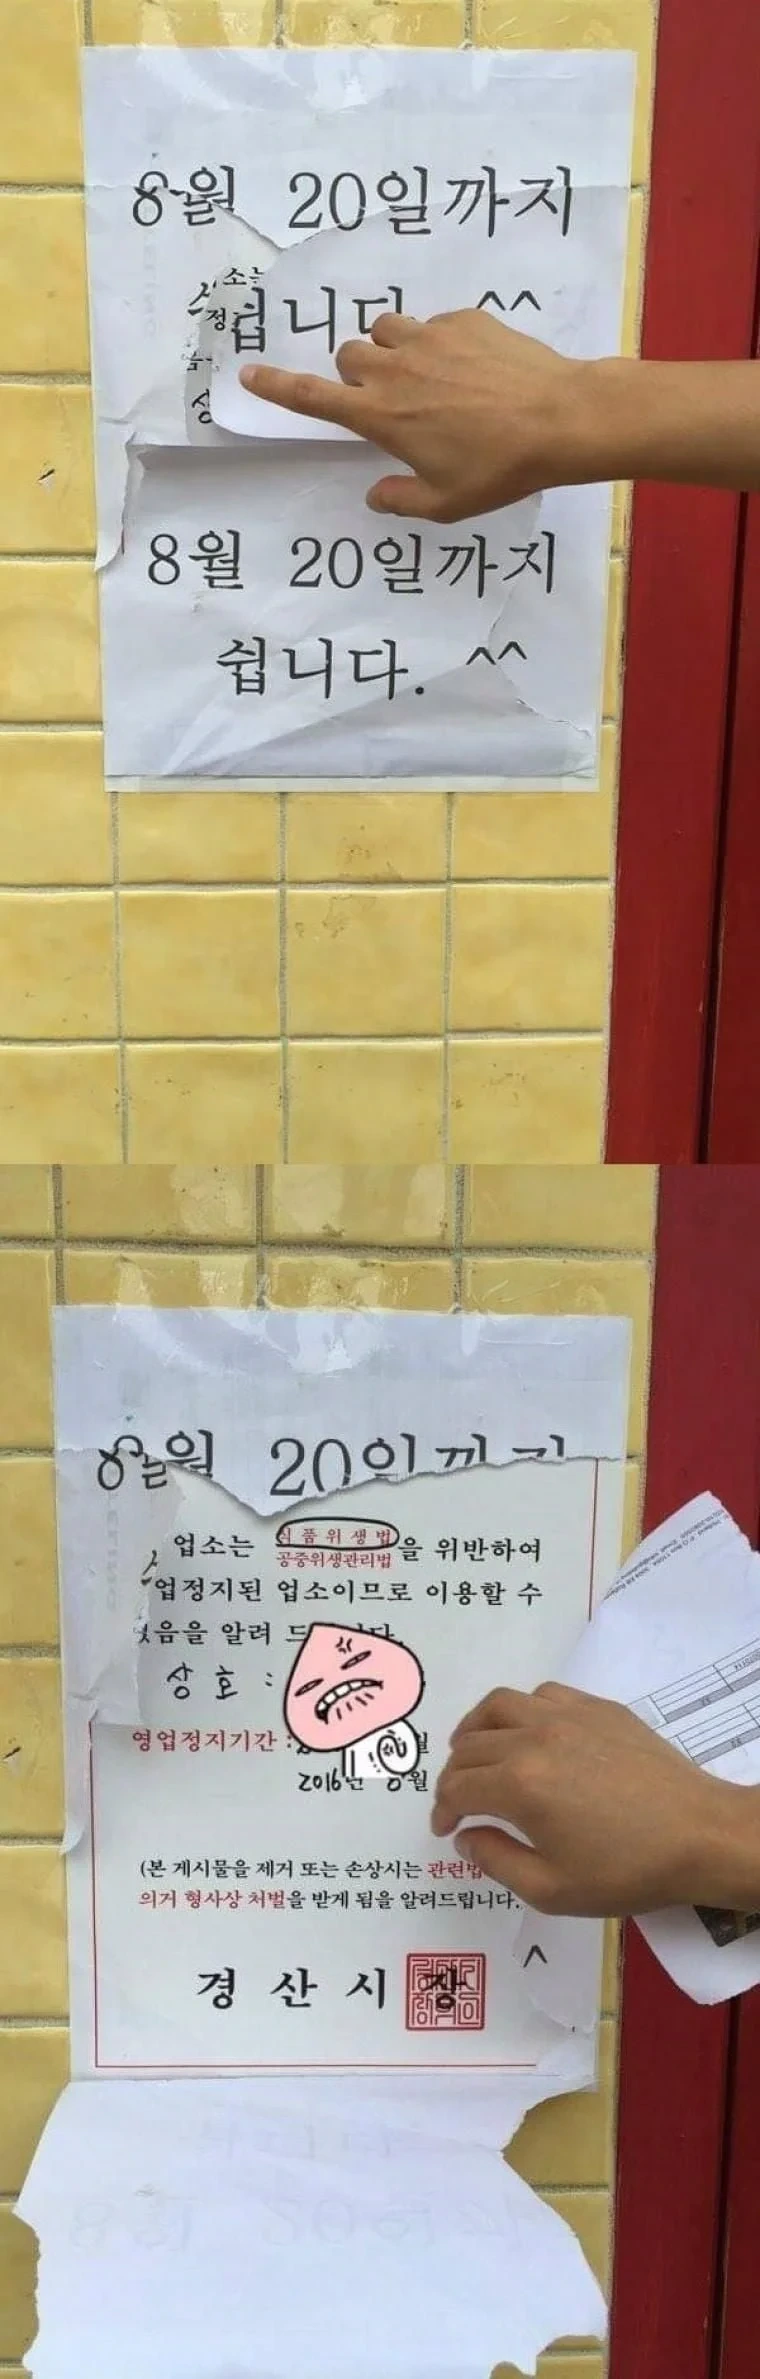 8월 20일까지
소는
정
쉽니다. ^^
8월 20일까지
쉽니다. ^^
8월 20일까지
업소는 식품위생법
공중위생관리법 을 위반하여
업정지된 업소이므로 이용할 수
없음을 알려 드립니다.
상 호 :
영업정지기간 :
2016년 8월
(본 게시물을 제거 또는 손상시는 관련법
의거 형사상 처벌을 받게 됨을 알려드립니다.
경 산 시 장
^